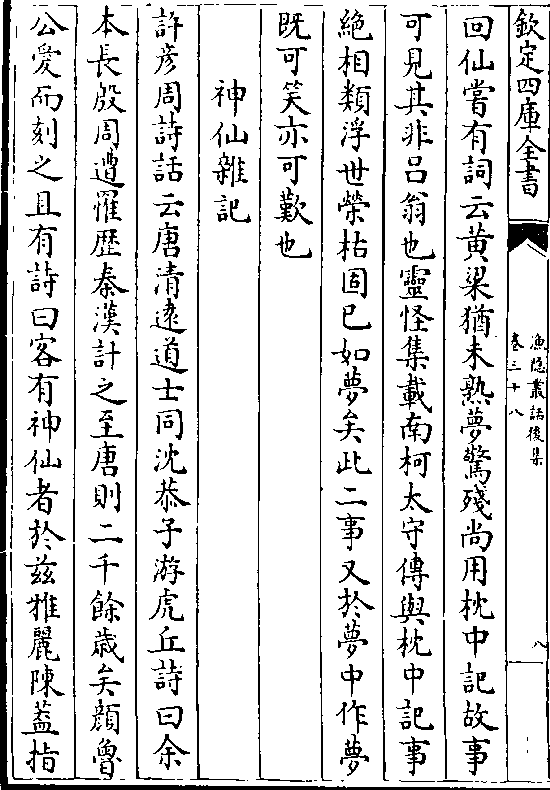 欽定四庫全書
漁隠叢話後集
卷三十八
八
回仙嘗有詞云黄粱猶未熟夢驚殘尚用枕中記故事
可見其非吕翁也靈怪集載南柯太守傳與枕中記事
絶相類浮世榮枯固已如夢矣此二事又於夢中作夢
既可笑亦可歎也
神仙雜記
許彦周詩話云唐清逺道士同沈恭子游虎丘詩曰余
本長殷周遭罹歴秦漢計之至唐則二千餘歳矣顔魯
公愛而刻之且有詩曰客有神仙者於兹雅麗陳葢指